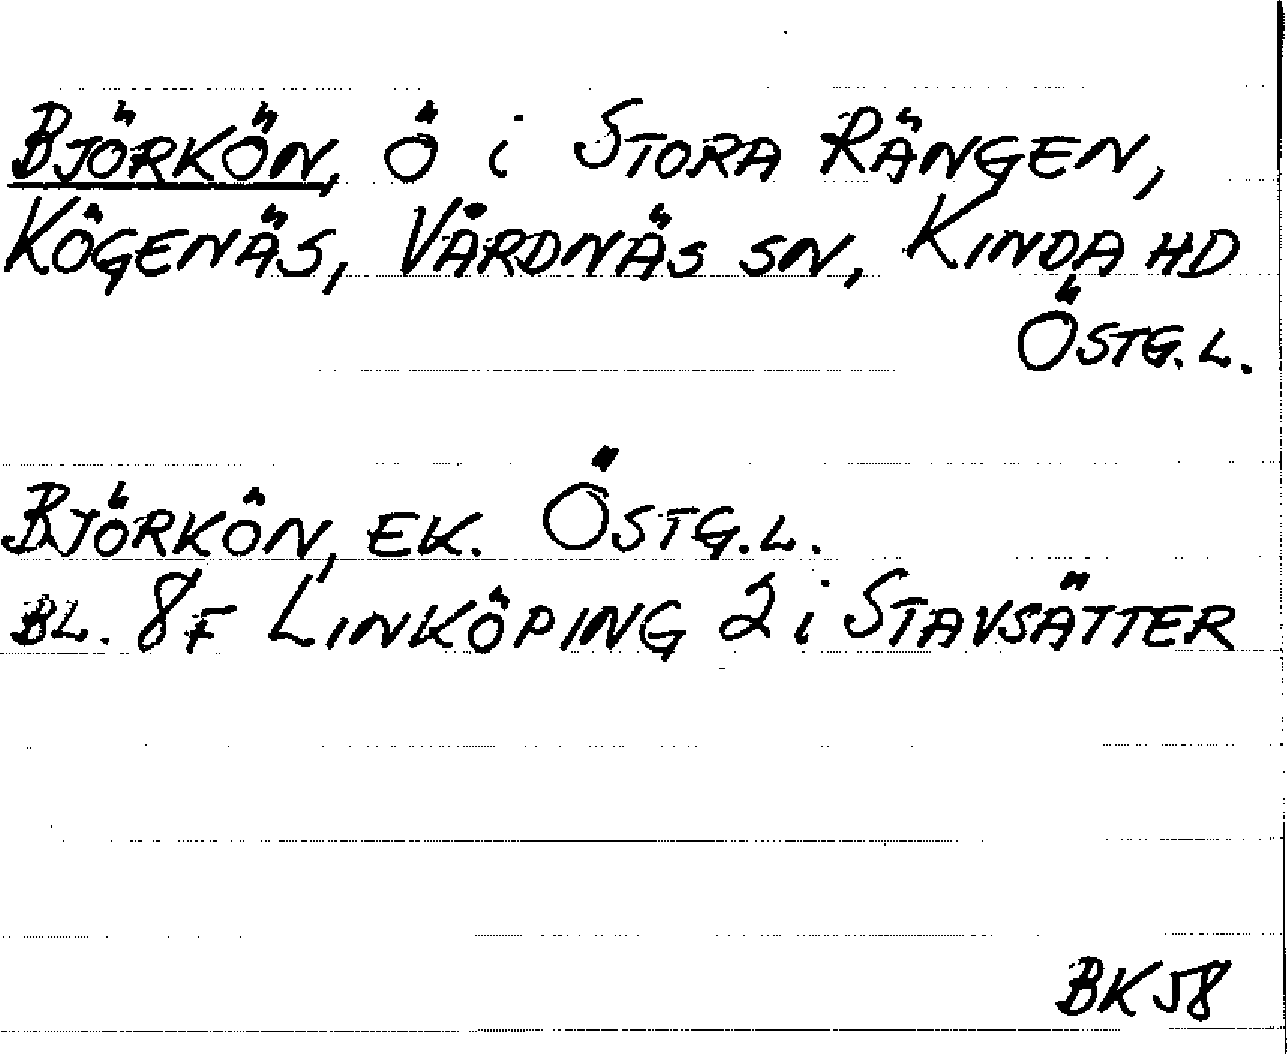 BJÖRKÖN, Ö i STORA RÄNGEN,
KÖGENÄS, VÅRDNÄS SN, KINDA HD
ÖSTG.L.
BJÖRKÖN, EK. ÖSTG.L.
BL. 8F LINKÖPING 2 i STAVSÄTTER
BK 58